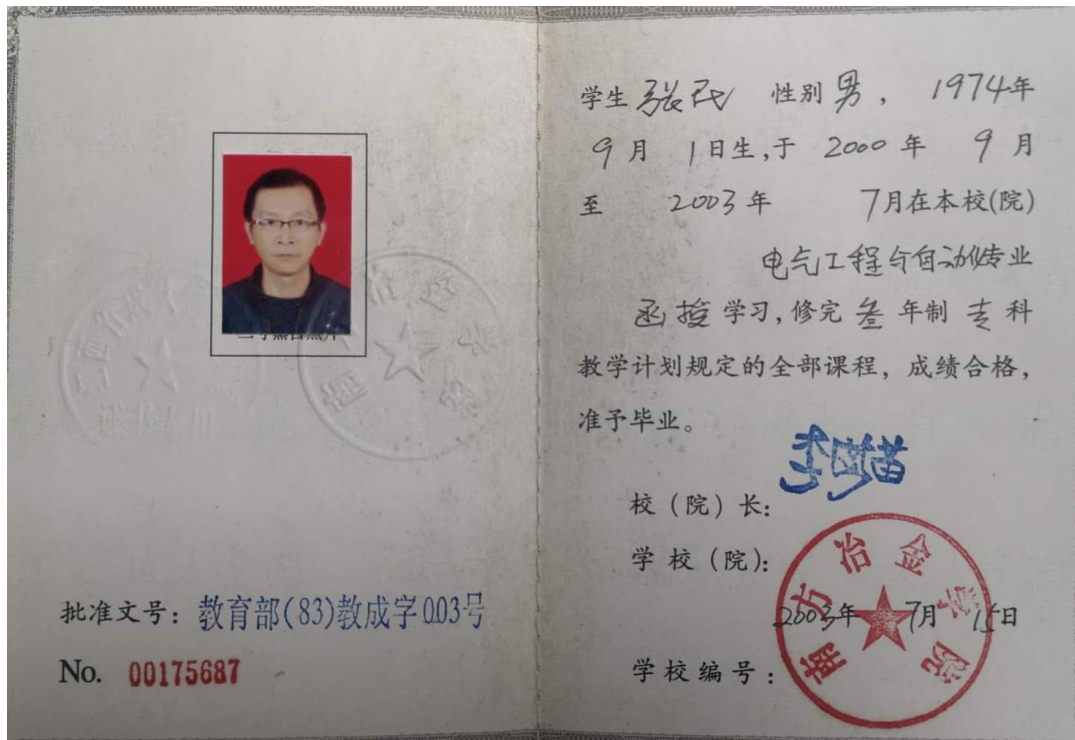 批准文号：教育部(83)教成字003号
No. 00175687
学生 张民 性别 男， 1974年
9月 1日生,于 2000年 9月
至 2003年 7月在本校(院)
电气工程与自动化专业
函授学习,修完 叁 年制 专 科
教学计划规定的全部课程，成绩合格，
准予毕业。
校（院）长：
学校（院）：
南方冶金学院
2003年 7月 15日
学校编号：